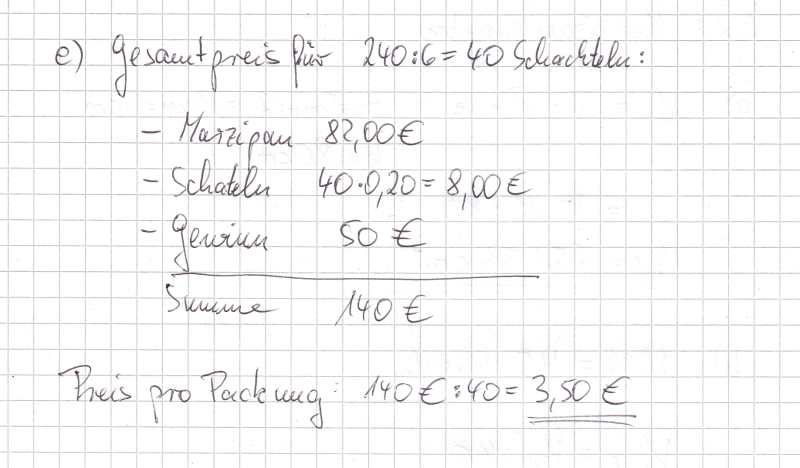 e) Gesamtpreis für 240:6=40 Schachteln:
- Marzipan 82,00€
- Schateln 40·0,20=8,00€
- Gewinn 50 €
Summe 140 €
Preis pro Packung: 140€:40= 3,50 €